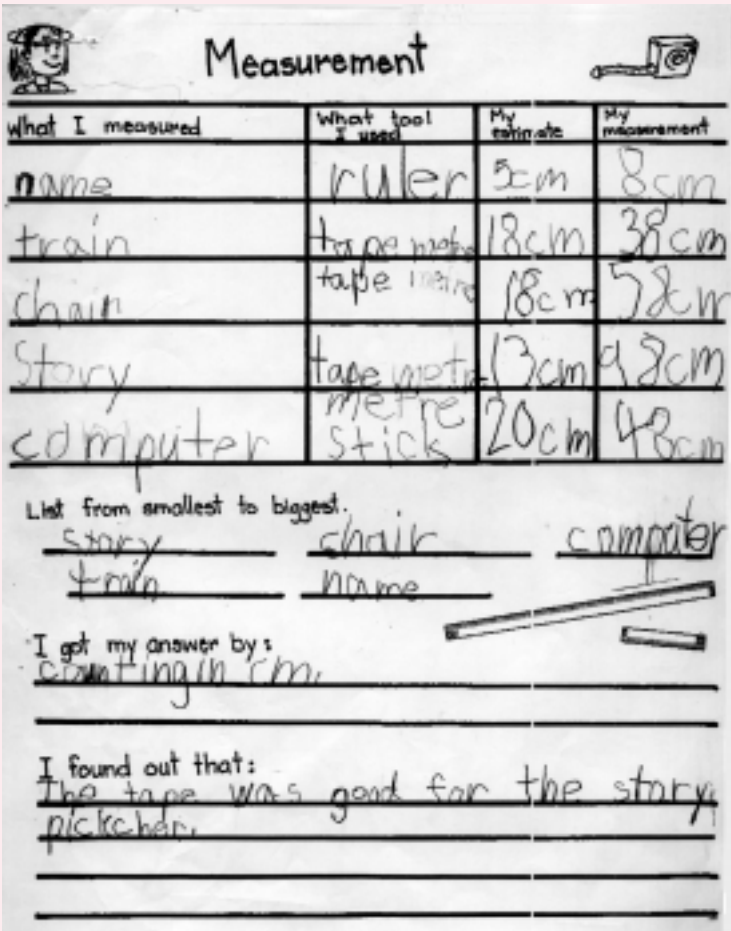 Measurement
What I measured What tool I used My estimate My measurement
name ruler 5cm 8cm
train tape metre 18cm 38cm
chair tape metre 18cm 58cm
Story tape metr 13cm 98cm
computer metre stick 20cm 48cm
List from smallest to biggest.
story chair computer
train name
I got my answer by:
counting in cm.
I found out that:
The tape was good for the story
pickcher.